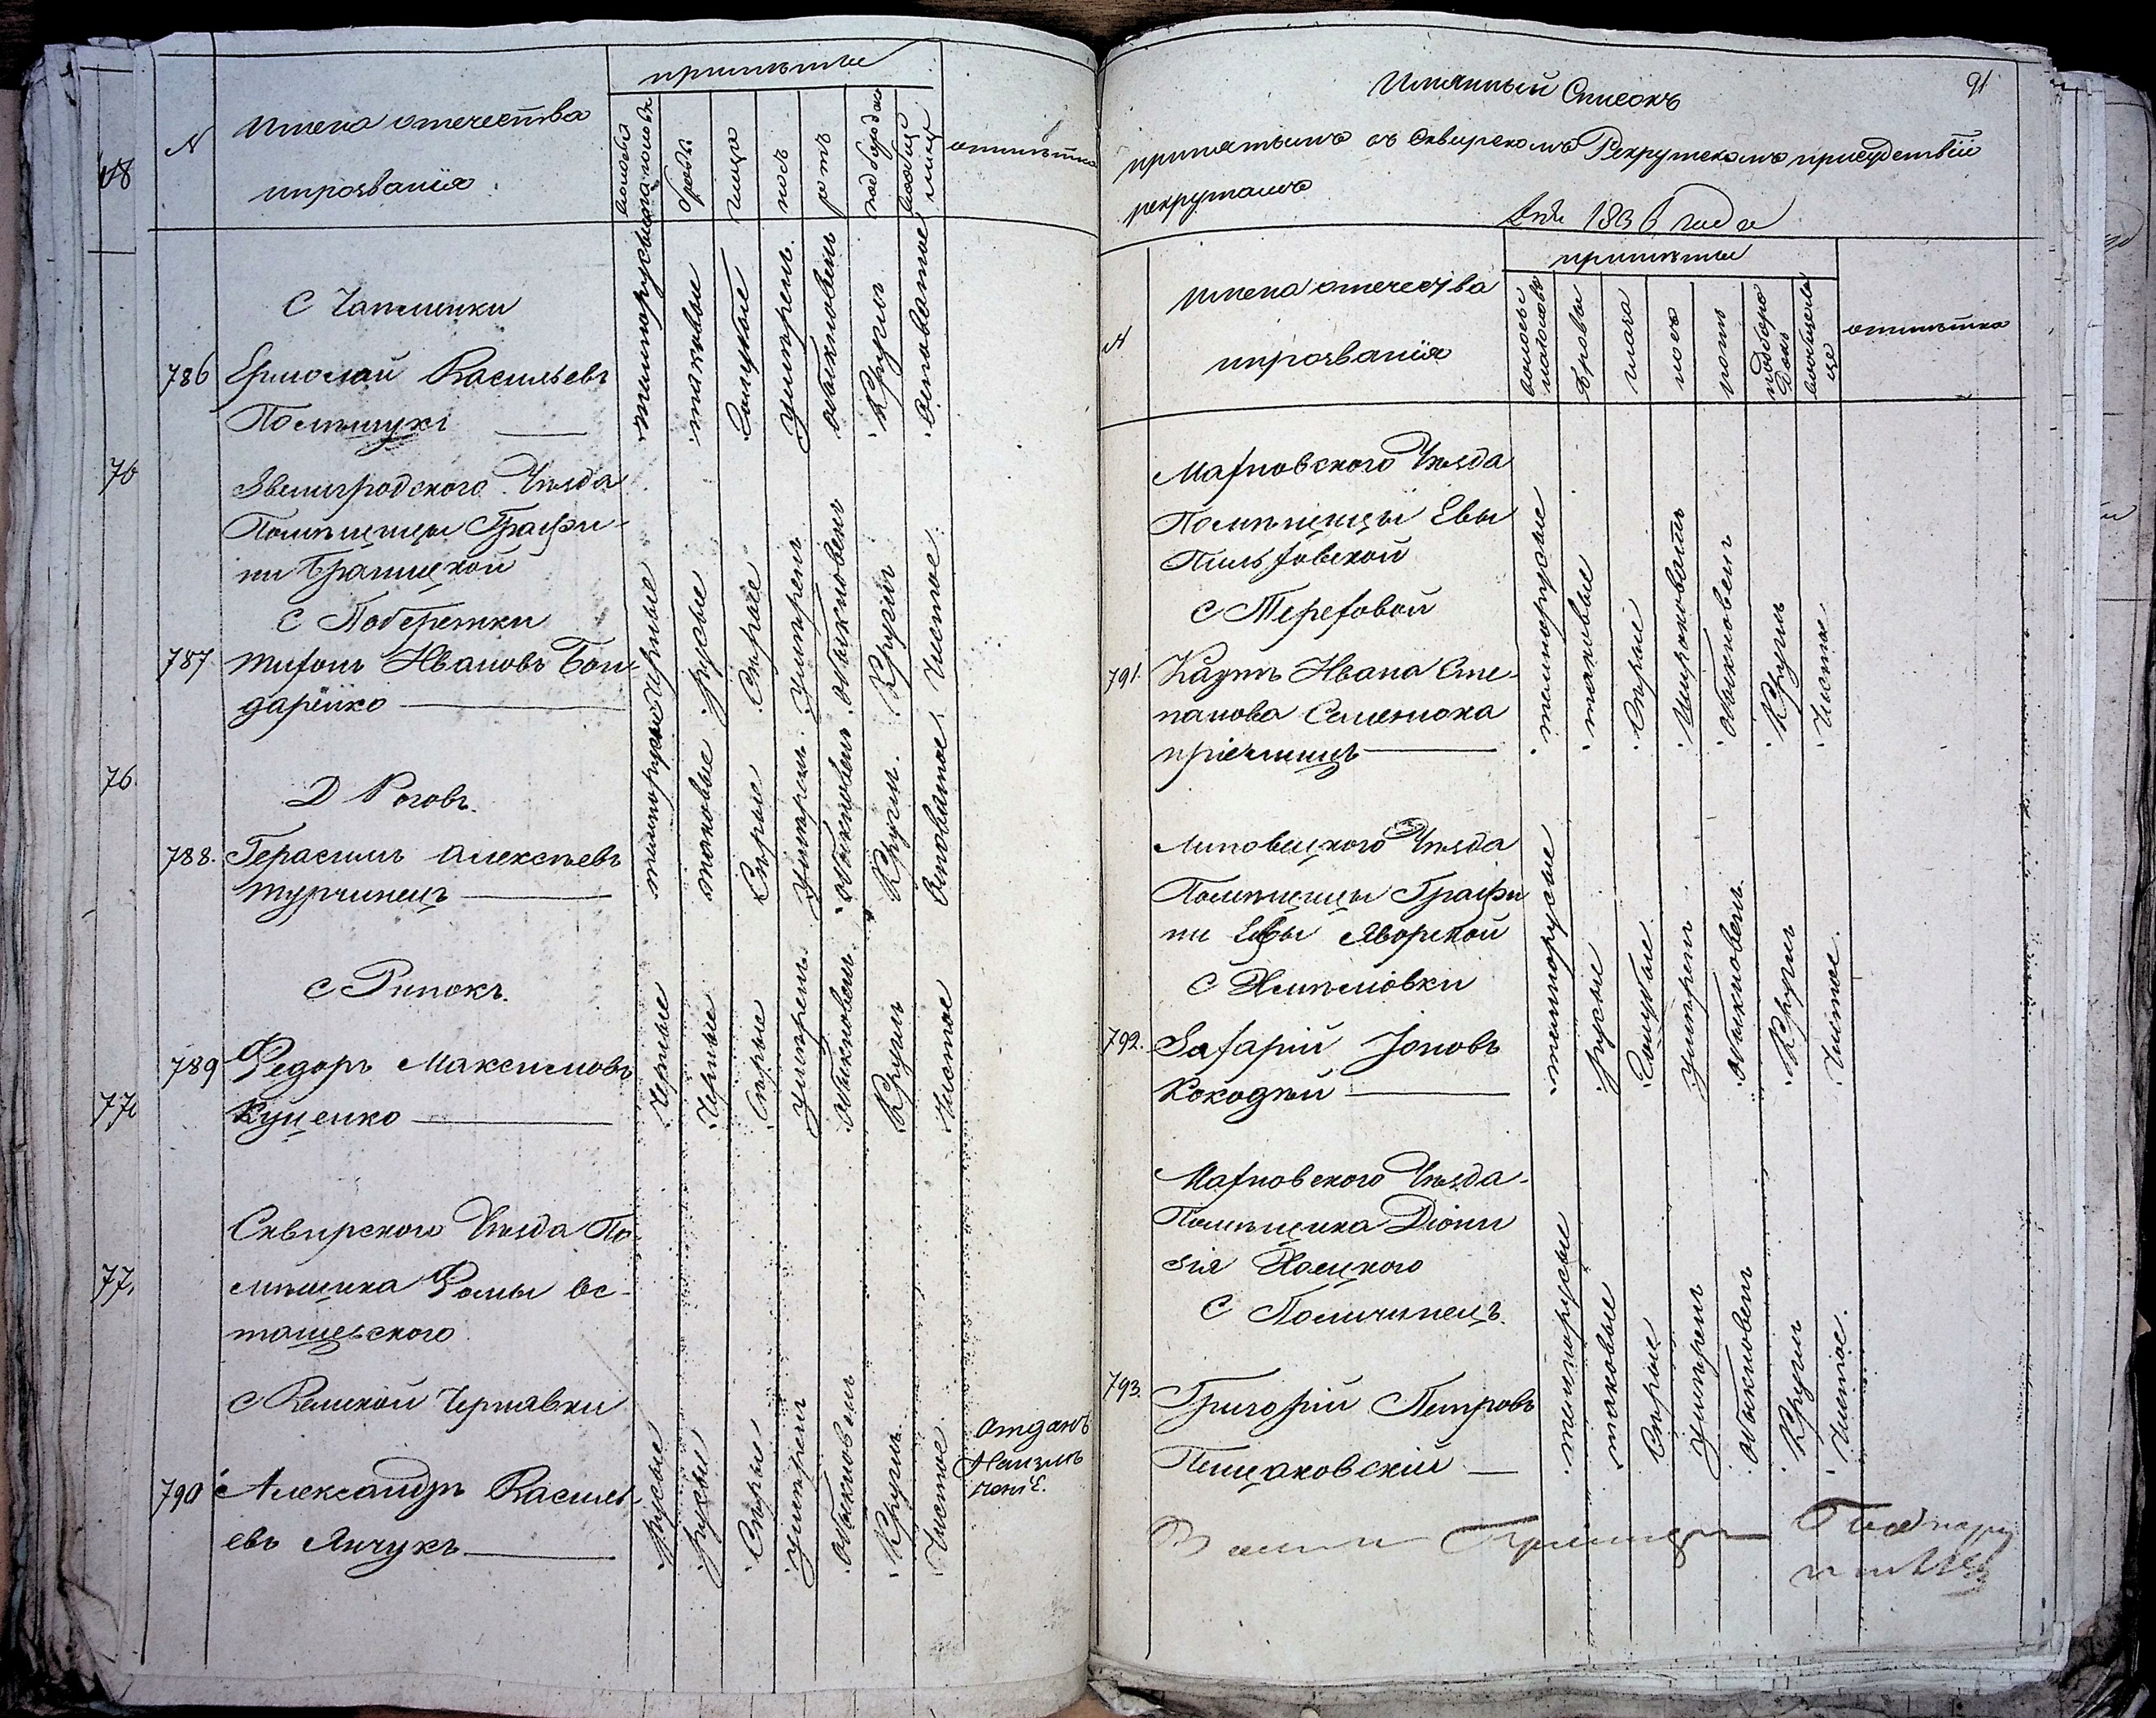 примѣты
N
Имена отечества
ипрозванія
волоса
наголовѣ
брови
глаза
носъ
ротъ
подбородокъ
вообще
лице
отмѣтка
С Чаплинки
786 Ермолай Васильевъ
Полѣщукъ
темнорусые
таковые
Голубые
Умѣрен.
обыкновен.
Кругл.
Осповатое
Звенигродского Уѣзда
Помѣщицы Графи-
ни Браницкой
С Побережки
787 Титонъ Ивановъ Бон-
даренко
Черные
русые
Сѣрые
Умѣрен.
обыкновен.
Кругл.
Чистое
Д Роговъ.
788. Герасимъ Алексѣевъ
Турчинецъ
темнорусые
таковые
Сѣрые
Умѣрен.
обыкновен.
Кругл.
Осповатое
С Рипокъ.
789 Федоръ Максимовъ
Куценко
Черные
Черные
Сѣрые
Умѣрен.
обыкновен.
Кругл.
Чистое
Сквирского Уѣзда По-
мѣщика Фомы Ос-
ташевского
С Великой Чернявки
790 Александръ Василь-
евъ Янчукъ
Русые
русые
Сѣрые
Умѣрен.
обыкновен.
Кругл.
Чистое
отданъ
76
76.
77
77.
91
Имянный Списокъ
принятымъ въ Сквирскомъ Рекрутскомъ присудствіи
рекрутамъ
1836 года
примѣты
N
Имена отечества
ипрозванія
волосы
наголовѣ
Бровы
глаза
носъ
ротъ
подборо
докъ
вообщели
це
отмѣтка
Махновского Уѣзда
Помѣщицы Евы
Пильховской
С Тереховой
791. Казим. Ивана Сте-
панова Семенюка
пріемышъ
темнорусые
таковые
Сѣрые
Широковатъ
обыкновен.
Кругл.
Чистое
Липовецкого Уѣзда
Помѣщицы Графи
ни Евы Яворской
С Жмѣліовки
792. Захарій Іоновъ
Кокодѣй
темнорусые
русые
Голубые
Умѣрен.
обыкновен.
Кругл.
Чистое
Махновского Уѣзда
Помѣщика Діони
зія Холцкого
С Поличинецъ.
793. Григорій Петровъ
Пещаковскій
темнорусые
таковые
Сѣрые
Умѣрен.
обыкновен.
Кругл.
Чистое